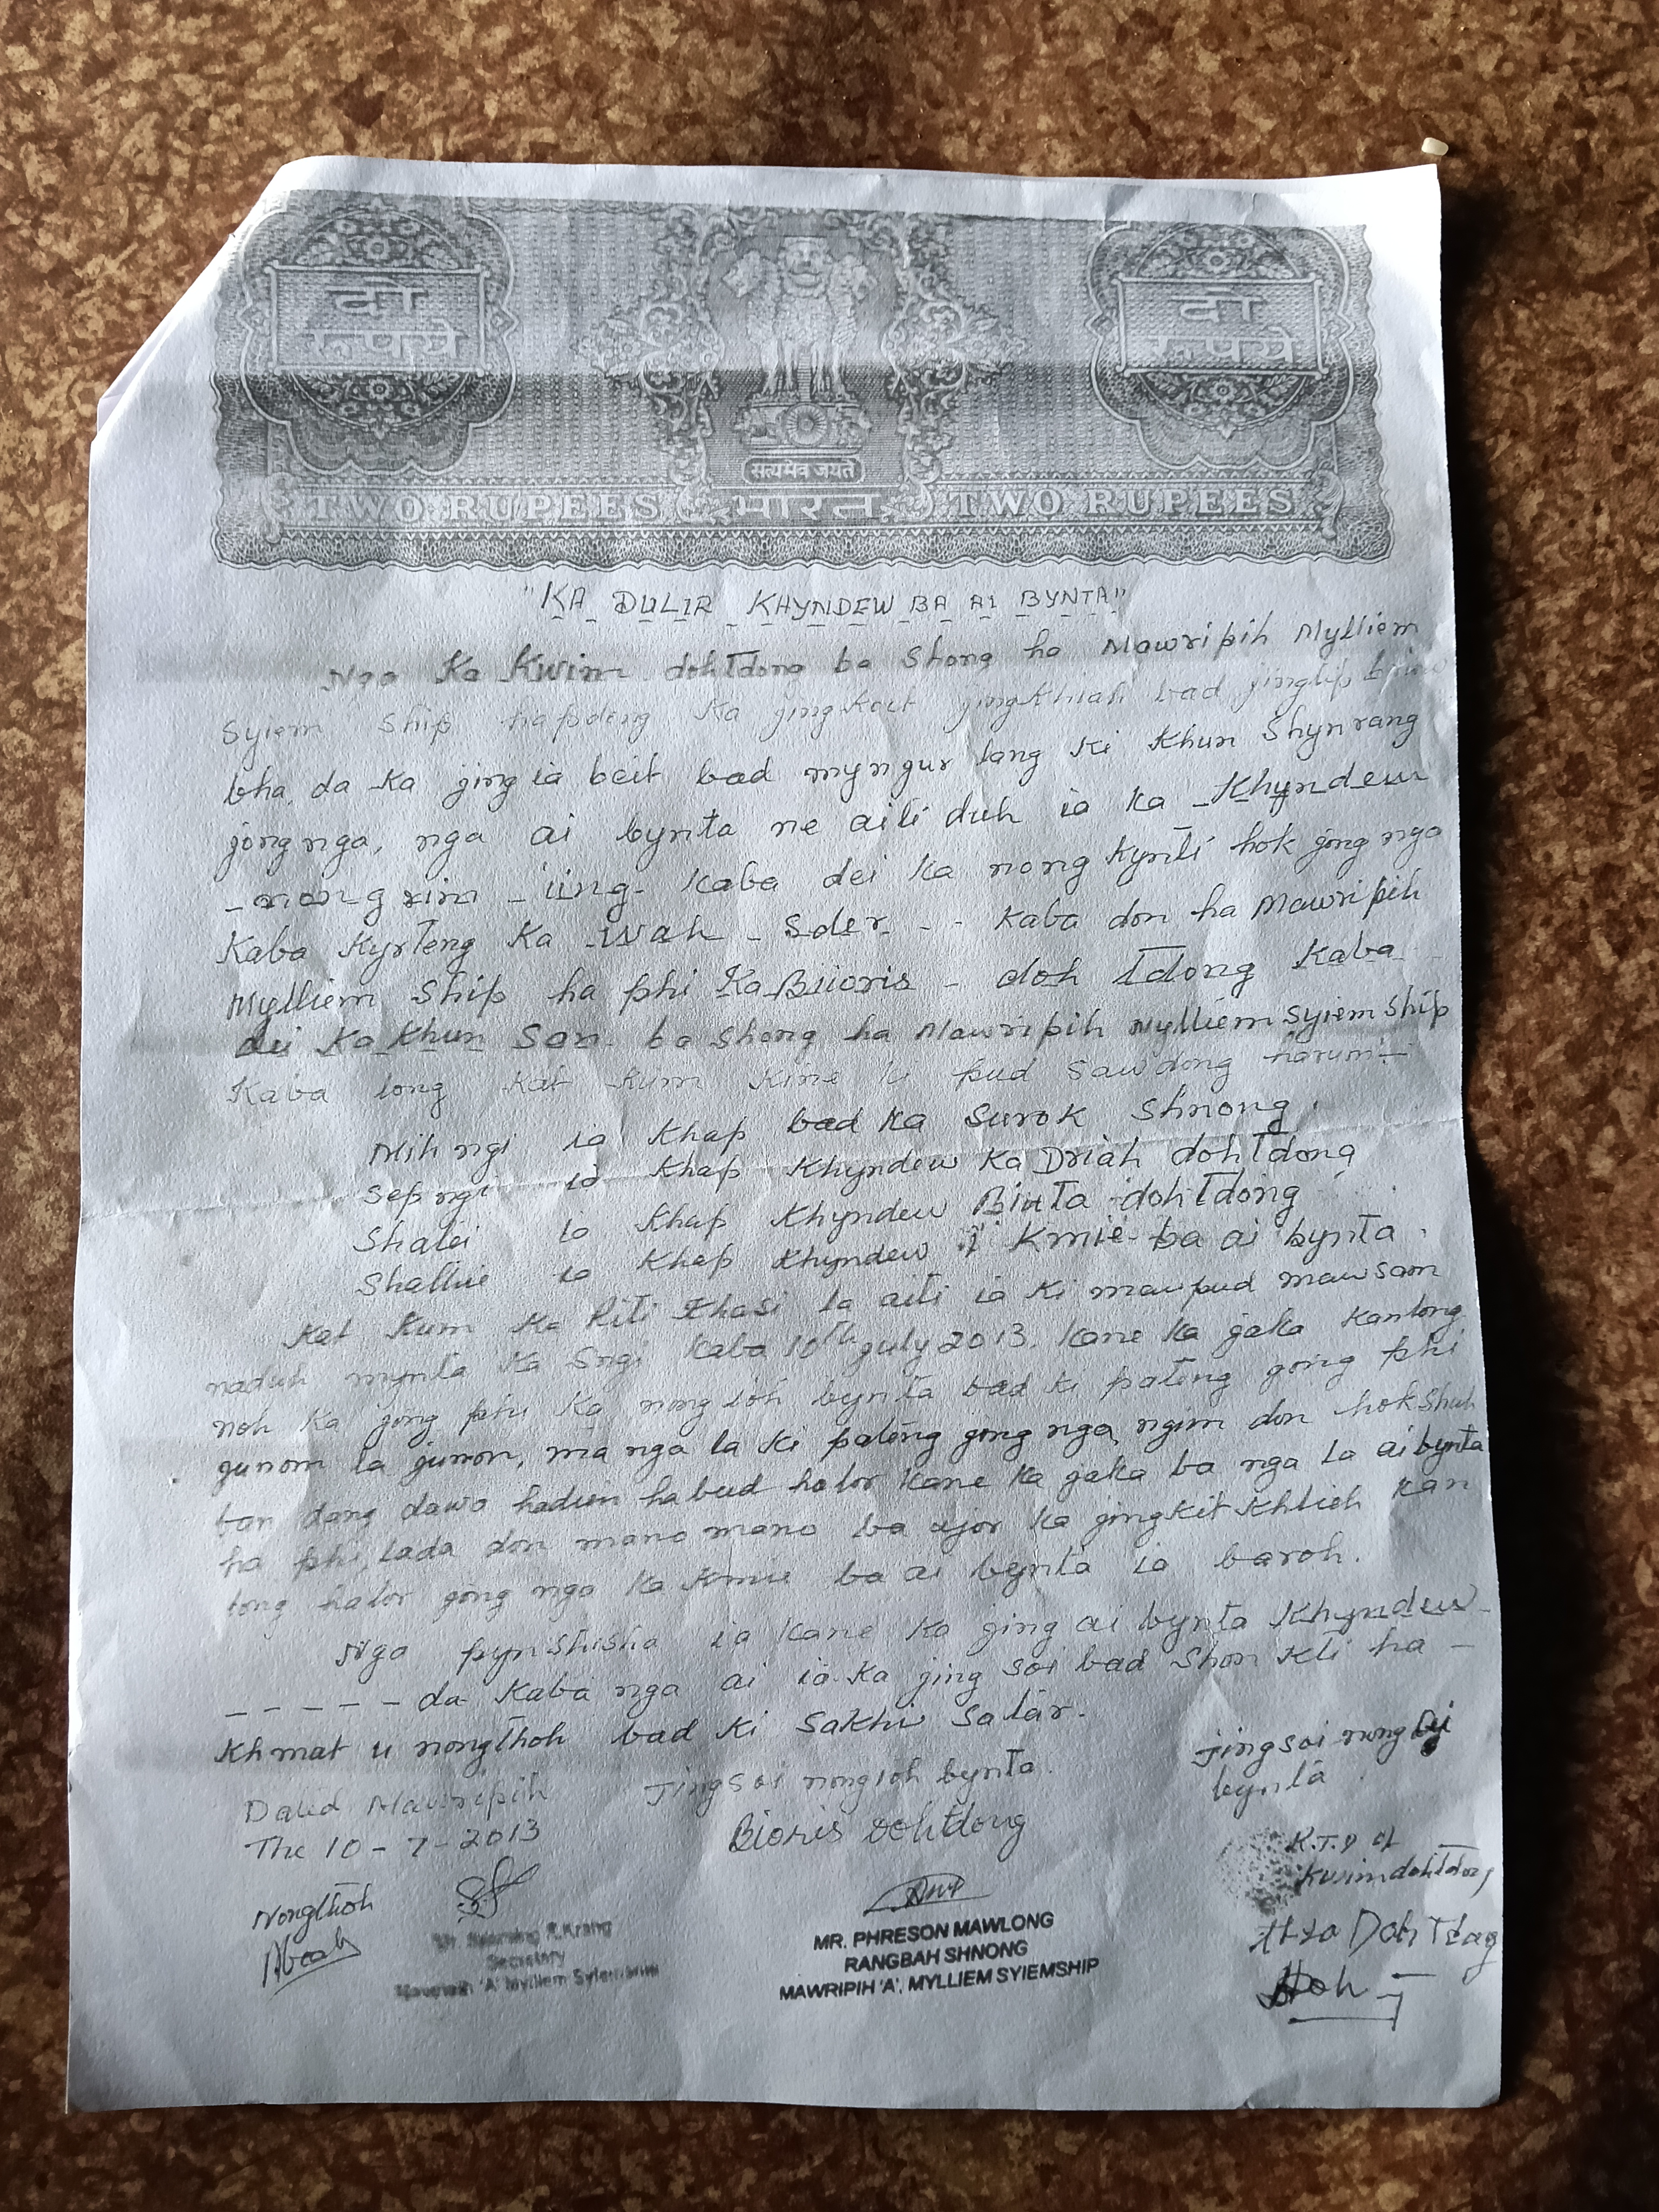 दो रुपये
दो रुपये
सत्यमेव जयते
TWO RUPEES भारत TWO RUPEES
"KA DULIR KHYNDEW BA AI BYNTA"
Nga Ka Kwin dohTdong ba Shong ha Mawripih Mylliem
Syiem Ship hapdeng ka jingkoit jingkhiah bad jingtip briew
bha, da ka jing ia beit bad myngur lang ki Khun Shynrang
jong nga, nga ai bynta ne aiti duh ia ka Khyndew
nongrim - iing - kaba dei ka nongkynti hok jong nga
Kaba kyrteng Ka Wah - Sder - - kaba don ha Mawripih
Mylliem Ship ha phi Ka Biioris - doh Tdong kaba
dei Ka Khun San ba shong ha Mawripih Mylliem Syiem Ship
Kaba long kat kum kine ki pud sawdong harum:-
Mih ngi ia khap bad ka Surok Shnong.
Sep ngi ia khap Khyndew Ka Driah dohTdong
Shatei ia khap Khyndew Binta dohTdong
Shathie ia khap Khyndew i Kmie ba ai bynta.
Kat kum ka Riti Khasi la aiti ia ki mawpud mawsam
naduh mynta ka Sngi kaba 10th July 2013. Kane ka jaka kanlong
noh ka jong phi ka nongioh bynta bad ki pateng jong phi
junom la junom, ma nga la ki pateng jong nga ngim don hok shuh
ban dang dawa hadien habud halor kane ka jaka ba nga la ai bynta
ha phi, lada don mano mano ba ujor ka jingkit khlieh kan
long halor jong nga ka Kmie ba ai bynta ia baroh.
Nga pynshisha ia kane ka jing ai bynta Khyndew -
- - - - - da kaba nga ai ia ka jing soi bad Shon kti ha -
Khmat u nongthoh bad ki Sakhi Salar.
Dated Mawripih Jingsoi nongioh bynta. Jingsoi nong ai
bynta
The 10 - 7 - 2013 Bioris Dohtdong
R.T.P of
Kwin dohTdong
Nongthoh
Secretary
Mawripih 'A' Mylliem Syiemship
MR. PHRESON MAWLONG
RANGBAH SHNONG
MAWRIPIH 'A', MYLLIEM SYIEMSHIP